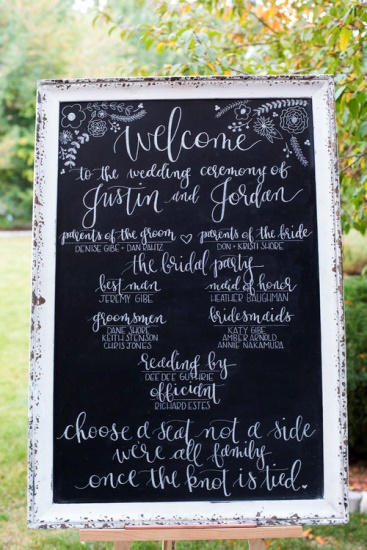 Welcome
to the wedding ceremony of
Justin and Jordan
parents of the groom ♡ parents of the bride
DENISE GIBE + DAN RAHTZ DON + KRISTI SHORE
the bridal party
best man maid of honor
JEREMY GIBE HEATHER BAUGHMAN
groomsmen bridesmaids
DANE SHORE KATY GIBE
KEITH STENSON AMBER ARNOLD
CHRIS JONES ANNIE NAKAMURA
reading by
DEE DEE GUTHRIE
officiant
RICHARD ESTES
choose a seat not a side
we're all family
once the knot is tied.